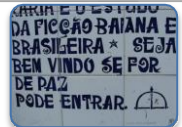 KARIA E O ESTUDO
DA FICÇÃO BAIANA E
BRASILEIRA * SEJA
BEM VINDO SE FOR
DE PAZ
PODE ENTRAR